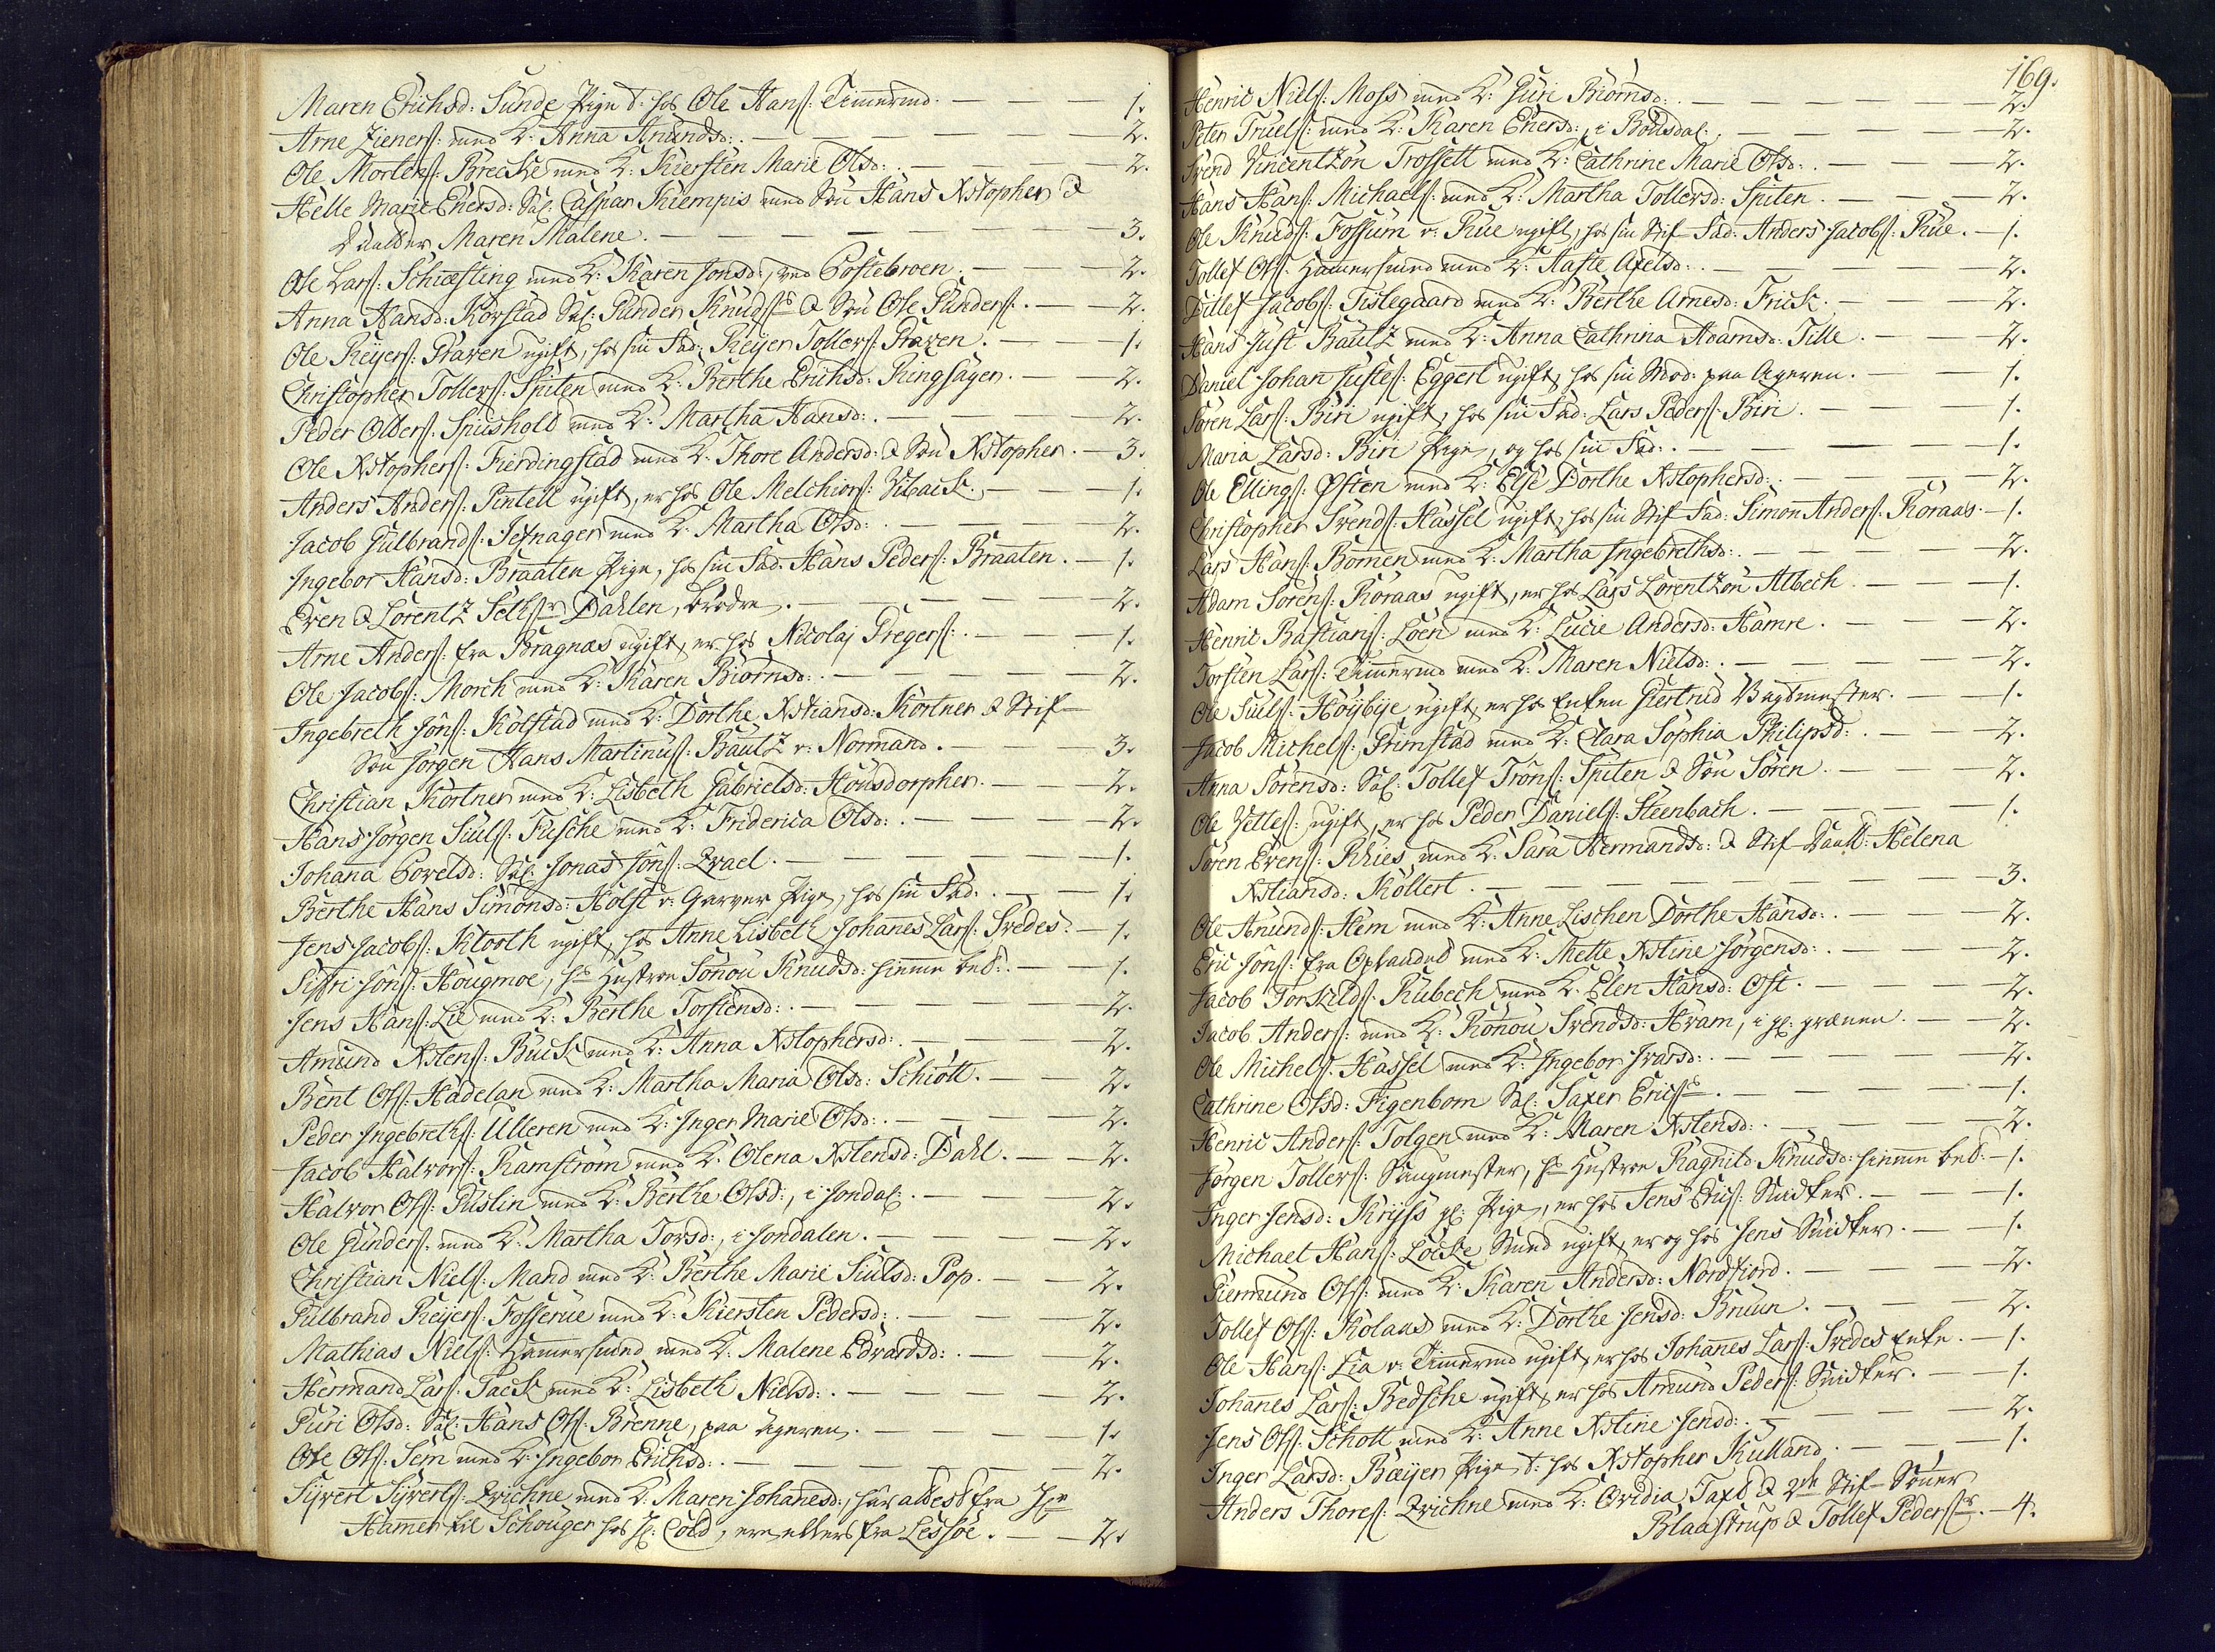 Maren Erichsd: Sunde Pige t: hos Ole Hanss: Timmermd. — 1.
Arne Zieners: med K: Anna Anunds: — 2.
Ole Mortens: Brecke med K: Kiersten Marie Olsd: — 2.
Helle Marie Enersd: Sal: Caspar Kiempis med Søn Hans Xstopher &
Daatter Maren Malene. — 3.
Ole Lars: Schiæsting med K: Karen Jonsd:, ved Costebroen. — 2.
Anna Hansd: Korstad Sal: Gunder Knuds: & Søn Ole Gunders: — 2.
Ole Reyers: Graven ugift, hos sin Fad: Reyer Tollers: Graven. — 1.
Christopher Tollers: Spiten med K: Berthe Erichsd: Ringsager. — 2.
Peder Olders: Spushold med K: Martha Hansd: — 2.
Ole Xstophers: Fierdingstad med K: Thore Andersd: & Søn Xstopher. — 3.
Anders Anders: Pintell ugift, er hos Ole Melchiors: Viback. — 1.
Jacob Gulbrands: Jefnager med K: Martha Olsd: — 2.
Ingebor Hansd: Braaten Pige, hos sin Fad: Hans Peders: Braaten. — 1.
Even & Lorentz Dahlen, Brødre. — 2.
Arne Anders: fra Bragnæs ugift, er hos Nicolaj Gregers: — 1.
Ole Jacobs: Morch med K: Karen Biørnsd: — 2.
Ingebreth Jons: Kolstad med K: Dorthe Xstiansd: Kortner & Stif-
Søn Jørgen Hans Martinus: Bautz v: Normand. — 3.
Christian Kortner med K: Lisbeth Gabrielsd: Housdorpher. — 2.
Hans Jørgen Siuls: Fische med K: Friderica Olsd: — 2.
Johana Povelsd: Sal: Jonas Jons: Qvael. — 1.
Berthe Hans Simonsd: Holst v: Garver Pige, hos sin Fad: — 1.
Jens Jacobs: Klooth ugift, hos Anne Lisbeth Johannes Lars: Svedes: — 1.
Siffri Jons: Hougmoe, hs Hustroe Sonou Knudsd: hiemme bet: — 1.
Jens Hans: Lie med K: Berthe Torstensd: — 2.
Amund Xstens: Buck med K: Anna Xstophersd: — 2.
Bent Ols: Hadelan med K: Martha Maria Olsd: Schiøtt. — 2.
Peder Ingebreths: Ulleren med K: Inger Marie Olsd: — 2.
Jacob Halvors: Ramstrøm med K: Olena Xstensd: Dahl. — 2.
Halvor Ols: Puslin med K: Berthe Olsd:, i Jondal: — 2.
Ole Gunders: med K: Martha Torsd:, i Jondalen. — 2.
Christian Niels: Mand med K: Berthe Marie Siulsd: Pop. — 2.
Gulbrand Reyers: Fosserue med K: Kiersten Pedersd: — 2.
Mathias Niels: Hammersmed med K: Malene Edvardsd: — 2.
Hermand Lars: Tack med K: Lisbeth Nielsd: — 2.
Guri Olsd: Sal: Hans Ols: Brenne, paa Ageren. — 1.
Ole Ols: Sem med K: Ingebor Erichsd: — 2.
Syvert Syverts: Qvichne med K: Maren Johanesd:,
Hammer til Schouger hos Hr: Cold, er ellers fra Lessøe. — 2.
169.
Henric Niels: Moss med K: Guri Biørnsd: — 2.
Peter Truels: med K: Karen Enersd:, i — 2.
Svend Vincentzøn Trossett med K: Cathrine Marie Olsd: — 2.
Hans Hans: Michaels: med K: Martha Tollersd: Spiten. — 2.
Ole Knuds: Fossum v: Rue ugift, hos sin Stif-Fad: Anders Jacobs: Rue. — 1.
Tollef Ols: Hammersmed med K: Aaste Axelsd: — 2.
Dillef Jacobs: Tislegaard med K: Berthe Arnesd: Frick. — 2.
Hans Just Bautz med K: Anna Cathrina Adamsd: Tille. — 2.
Daniel Johan Justes: Eggert ugift, hos sin Mod: paa Ageren. — 1.
Søren Lars: Biri ugift, hos sin Fad: Lars Peders: Biri. — 1.
Maria Larsd: Biri Pige, og hos sin Fad: — 1.
Ole Ellings: Østen med K: Else Dorthe Xstophersd: — 2.
Christopher Svends: Hassel ugift, hos sin Stif-Fad: Simon Anders: Røraas. — 1.
Lars Hans: Bommen med K: Martha Ingebrethsd: — 2.
Adam Sørens: Røraas ugift, er hos Lars Lorentzøn Albech — 1.
Henric Bastians: Loen med K: Lucie Andersd: Hamre. — 2.
Torsten Lars: Timmermd med K: Maren Nielsd: — 2.
Ole Siuls: Høybye ugift, er hos Enken Giertrud Vagtmester. — 1.
Jacob Michels: Grimstad med K: Clara Sophia Philipsd: — 2.
Anna Sørensd: Sal: Tollef Trons: Spiten & Søn Søren. — 2.
Ole Vettes: ugift, er hos Peder Daniels: Steenbach. — 1.
Søren Evens: Rhies med K: Sara Hermandsd: & Stif-Daatt: Helena
Xstiansd: Kollert. — 3.
Ole Anunds: Hem med K: Anne Lischen Dorthe Hansd: — 2.
Eric Jons: fra Oplandet med K: Mette Xstine Jørgensd: — 2.
Jacob Torkilds: Rubech med K: Elen Hansd: Ost. — 2.
Jacob Anders: med K: Ronou Svendsd: Hvam, i gl: — 2.
Ole Michels: Hassel med K: Ingebor Ivarsd: — 2.
Cathrine Olsd: Figenbom Sal: Saxer Erics: — 1.
Henric Anders: Tolgen med K: Maren Xstensd: — 2.
Jørgen Tollers: Saugmester, hs Hustroe Ragnild Knudsd: hiemme bet: — 1.
Inger Jensd: Kryss gl: Pige, er hos Jens Erics: Snidker. — 1.
Michael Hans: Locke Smed ugift, er og hos Jens Snidker. — 1.
Giermund Ols: med K: Karen Andersd: Nordfiord. — 2.
Tollef Ols: Kolaas med K: Dorthe Jensd: Bruun. — 2.
Ole Hans: Lia v: Timmermd ugift, er hos Johannes Lars: Svedes Enke. — 1.
Johannes Lars: Bedsche ugift, er hos Amund Peders: Snidker. — 1.
Jens Ols: Schott med K: Anne Xstine Jensd: — 2.
Inger Larsd: Bæyer Pige t: hos Xstopher Kulland. — 1.
Anders Thores: Qvichne med K: Ovidia Taxt & 2de Stif-Sønner
Blaastrup & Tollef Peders: — 4.